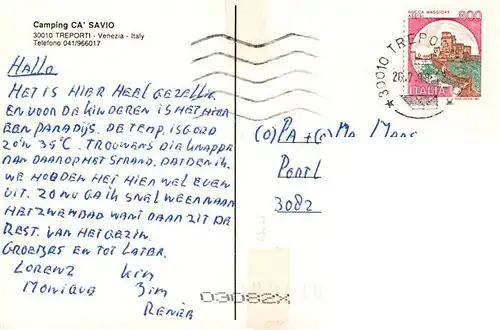 Camping CA' SAVIO
30010 TREPORTI - Venezia - Italy
Telefono 041/966017
HALLO
HET IS HIER HEEL GEZELLIG
EN VOOR DE KINDEREN IS HET HIER
EEN PARADIJS. DE TEMP. IS GOED
ZO'N 35°C. TROUWENS DIE KNAPPE
MAN DAAR OP HET STRAND. DAT BEN IK.
WE HOUDEN HET HIER WEL EVEN
UIT. ZO NU GA IK SNEL WEER NAAR
HET ZWEMBAD WANT DAAR ZIT DE
REST. VAN HET GEZIN.
GROETJES EN TOT LATER.
LORENZ Kim
MONIQUE Jim
RENÉE
ROCCA MAGGIORE
800
ITALIA
30010 TREPO
(O)PA + (O)MA
3082
03082X